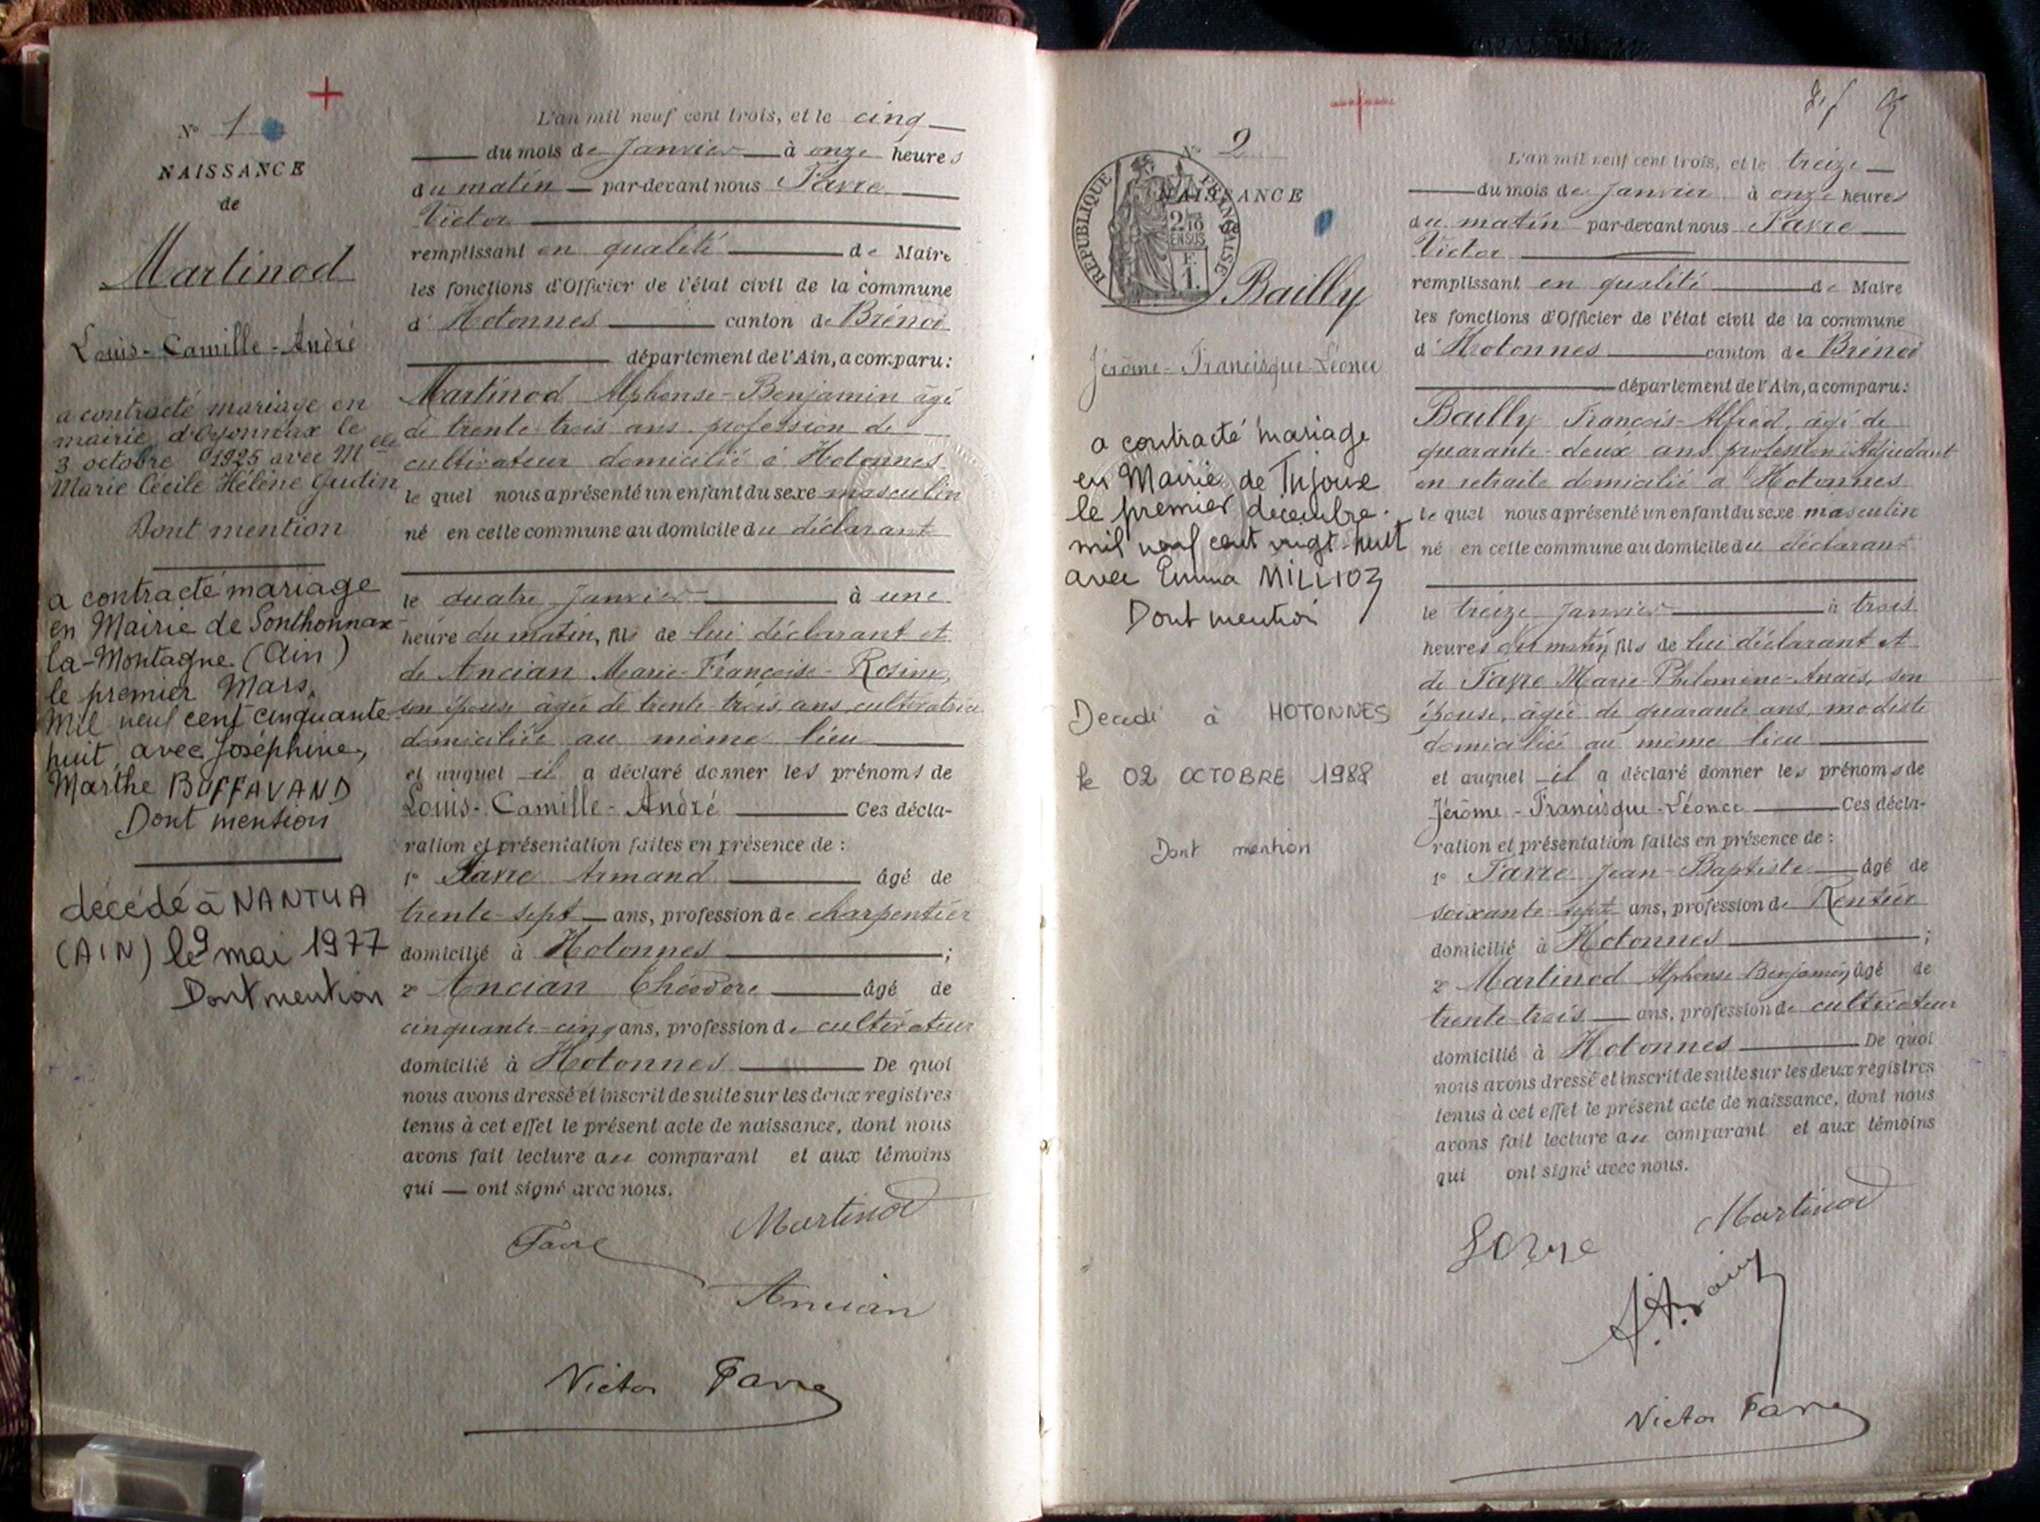 N° 1
NAISSANCE
de
Martinod
Louis-Camille-André
a contracté mariage en
mairie d'Oyonnax le
3 octobre 1925 avec Melle
Marie Cécile Hélène Gudin
Dont mention
a contracté mariage
en Mairie de Sonthonnax-
la-Montagne (Ain)
le premier Mars
Mil neuf cent cinquante-
huit, avec Joséphine,
Marthe BUFFAVAND
Dont mention
décédé à NANTUA
(AIN) le 9 mai 1977
Dont mention
L'an mil neuf cent trois, et le cinq
du mois de Janvier à onze heures
du matin par-devant nous Favre
Victor
remplissant en qualité de Maire
les fonctions d'Officier de l'état civil de la commune
d' Hotonnes canton de Brénod
département de l'Ain, a comparu :
Martinod Alphonse-Benjamin âgé
de trente trois ans profession de
cultivateur domicilié à Hotonnes
le quel nous a présenté un enfant du sexe masculin
né en cette commune au domicile du déclarant
le quatre Janvier à une
heure du matin, fils de lui déclarant et
de Ancian Marie-Françoise-Rosine,
son épouse âgée de trente trois ans cultivatrice
domiciliée au même lieu
et auquel il a déclaré donner les prénoms de
Louis-Camille-André Ces décla-
ration et présentation faites en présence de :
1° Favre Armand âgé de
trente-sept ans, profession de charpentier
domicilié à Hotonnes ;
2° Ancian Théodore âgé de
cinquante-cinq ans, profession de cultivateur
domicilié à Hotonnes De quoi
nous avons dressé et inscrit de suite sur les deux registres
tenus à cet effet le présent acte de naissance, dont nous
avons fait lecture au comparant et aux témoins
qui ont signé avec nous.
Martinod
Favre
Ancian
Victor Favre
N° 2
NAISSANCE
RÉPUBLIQUE FRANÇAISE
2/10
EN SUS
F.
1.
Bailly
Jérôme-Francisque-Léonce
a contracté mariage
en Mairie de Mijoux
le premier décembre
mil neuf cent vingt-huit
avec Emma MILLIOZ
Dont mention
Décédé à HOTONNES
le 02 OCTOBRE 1988
Dont mention
L'an mil neuf cent trois, et le treize
du mois de Janvier à onze heures
du matin par-devant nous Favre
Victor
remplissant en qualité de Maire
les fonctions d'Officier de l'état civil de la commune
d' Hotonnes canton de Brénod
département de l'Ain, a comparu :
Bailly François-Alfred, âgé de
quarante-deux ans profession Adjudant
en retraite domicilié à Hotonnes
le quel nous a présenté un enfant du sexe masculin
né en cette commune au domicile du déclarant
le treize Janvier à trois
heures du matin, fils de lui déclarant et
de Favre Marie-Philomène-Anaïs, son
épouse, âgée de quarante ans, modiste
domiciliée au même lieu
et auquel il a déclaré donner les prénoms de
Jérôme-Francisque-Léonce Ces décla-
ration et présentation faites en présence de :
1° Favre Jean-Baptiste âgé de
soixante-sept ans, profession de Rentier
domicilié à Hotonnes ;
2° Martinod Alphonse Benjamin, âgé de
trente trois ans, profession de cultivateur
domicilié à Hotonnes De quoi
nous avons dressé et inscrit de suite sur les deux registres
tenus à cet effet le présent acte de naissance, dont nous
avons fait lecture au comparant et aux témoins
qui ont signé avec nous.
Martinod
Victor Favre